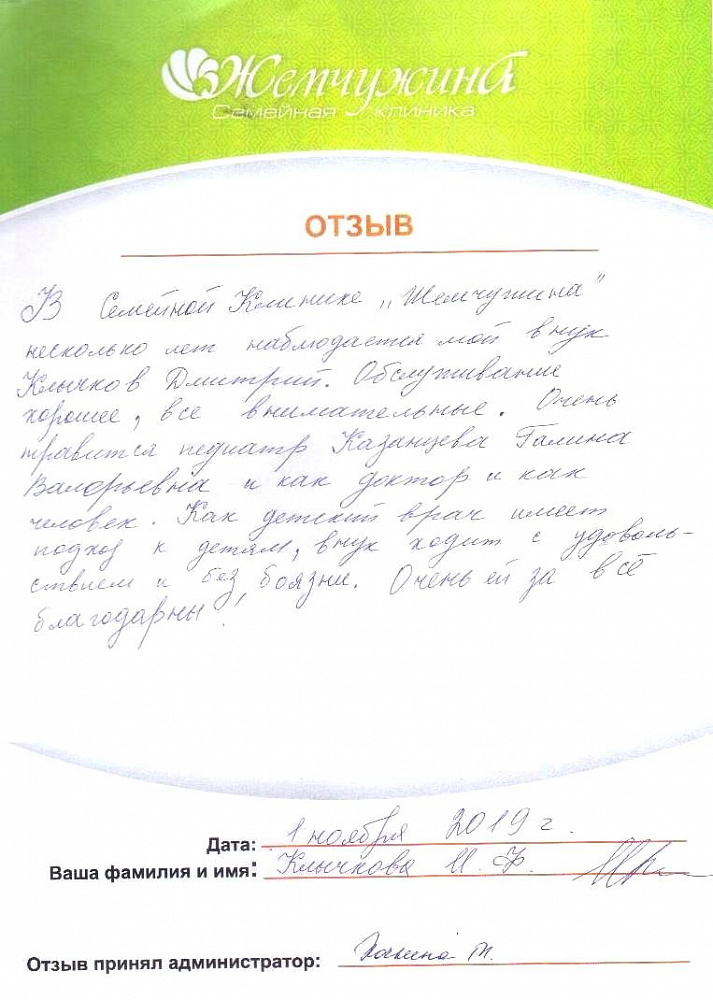 Жемчужина
Семейная клиника
ОТЗЫВ
В Семейной Клинике „Жемчужина"
несколько лет наблюдается мой внук
Клычков Дмитрий. Обслуживание
хорошее, все внимательные. Очень
нравится педиатр Казанцева Галина
Валерьевна и как доктор и как
человек. Как детский врач имеет
подход к детям, внук ходит с удоволь-
ствием и без боязни. Очень ей за всё
благодарны!
Дата: 1 ноября 2019 г.
Ваша фамилия и имя: Клычкова И. Ф.
Отзыв принял администратор: